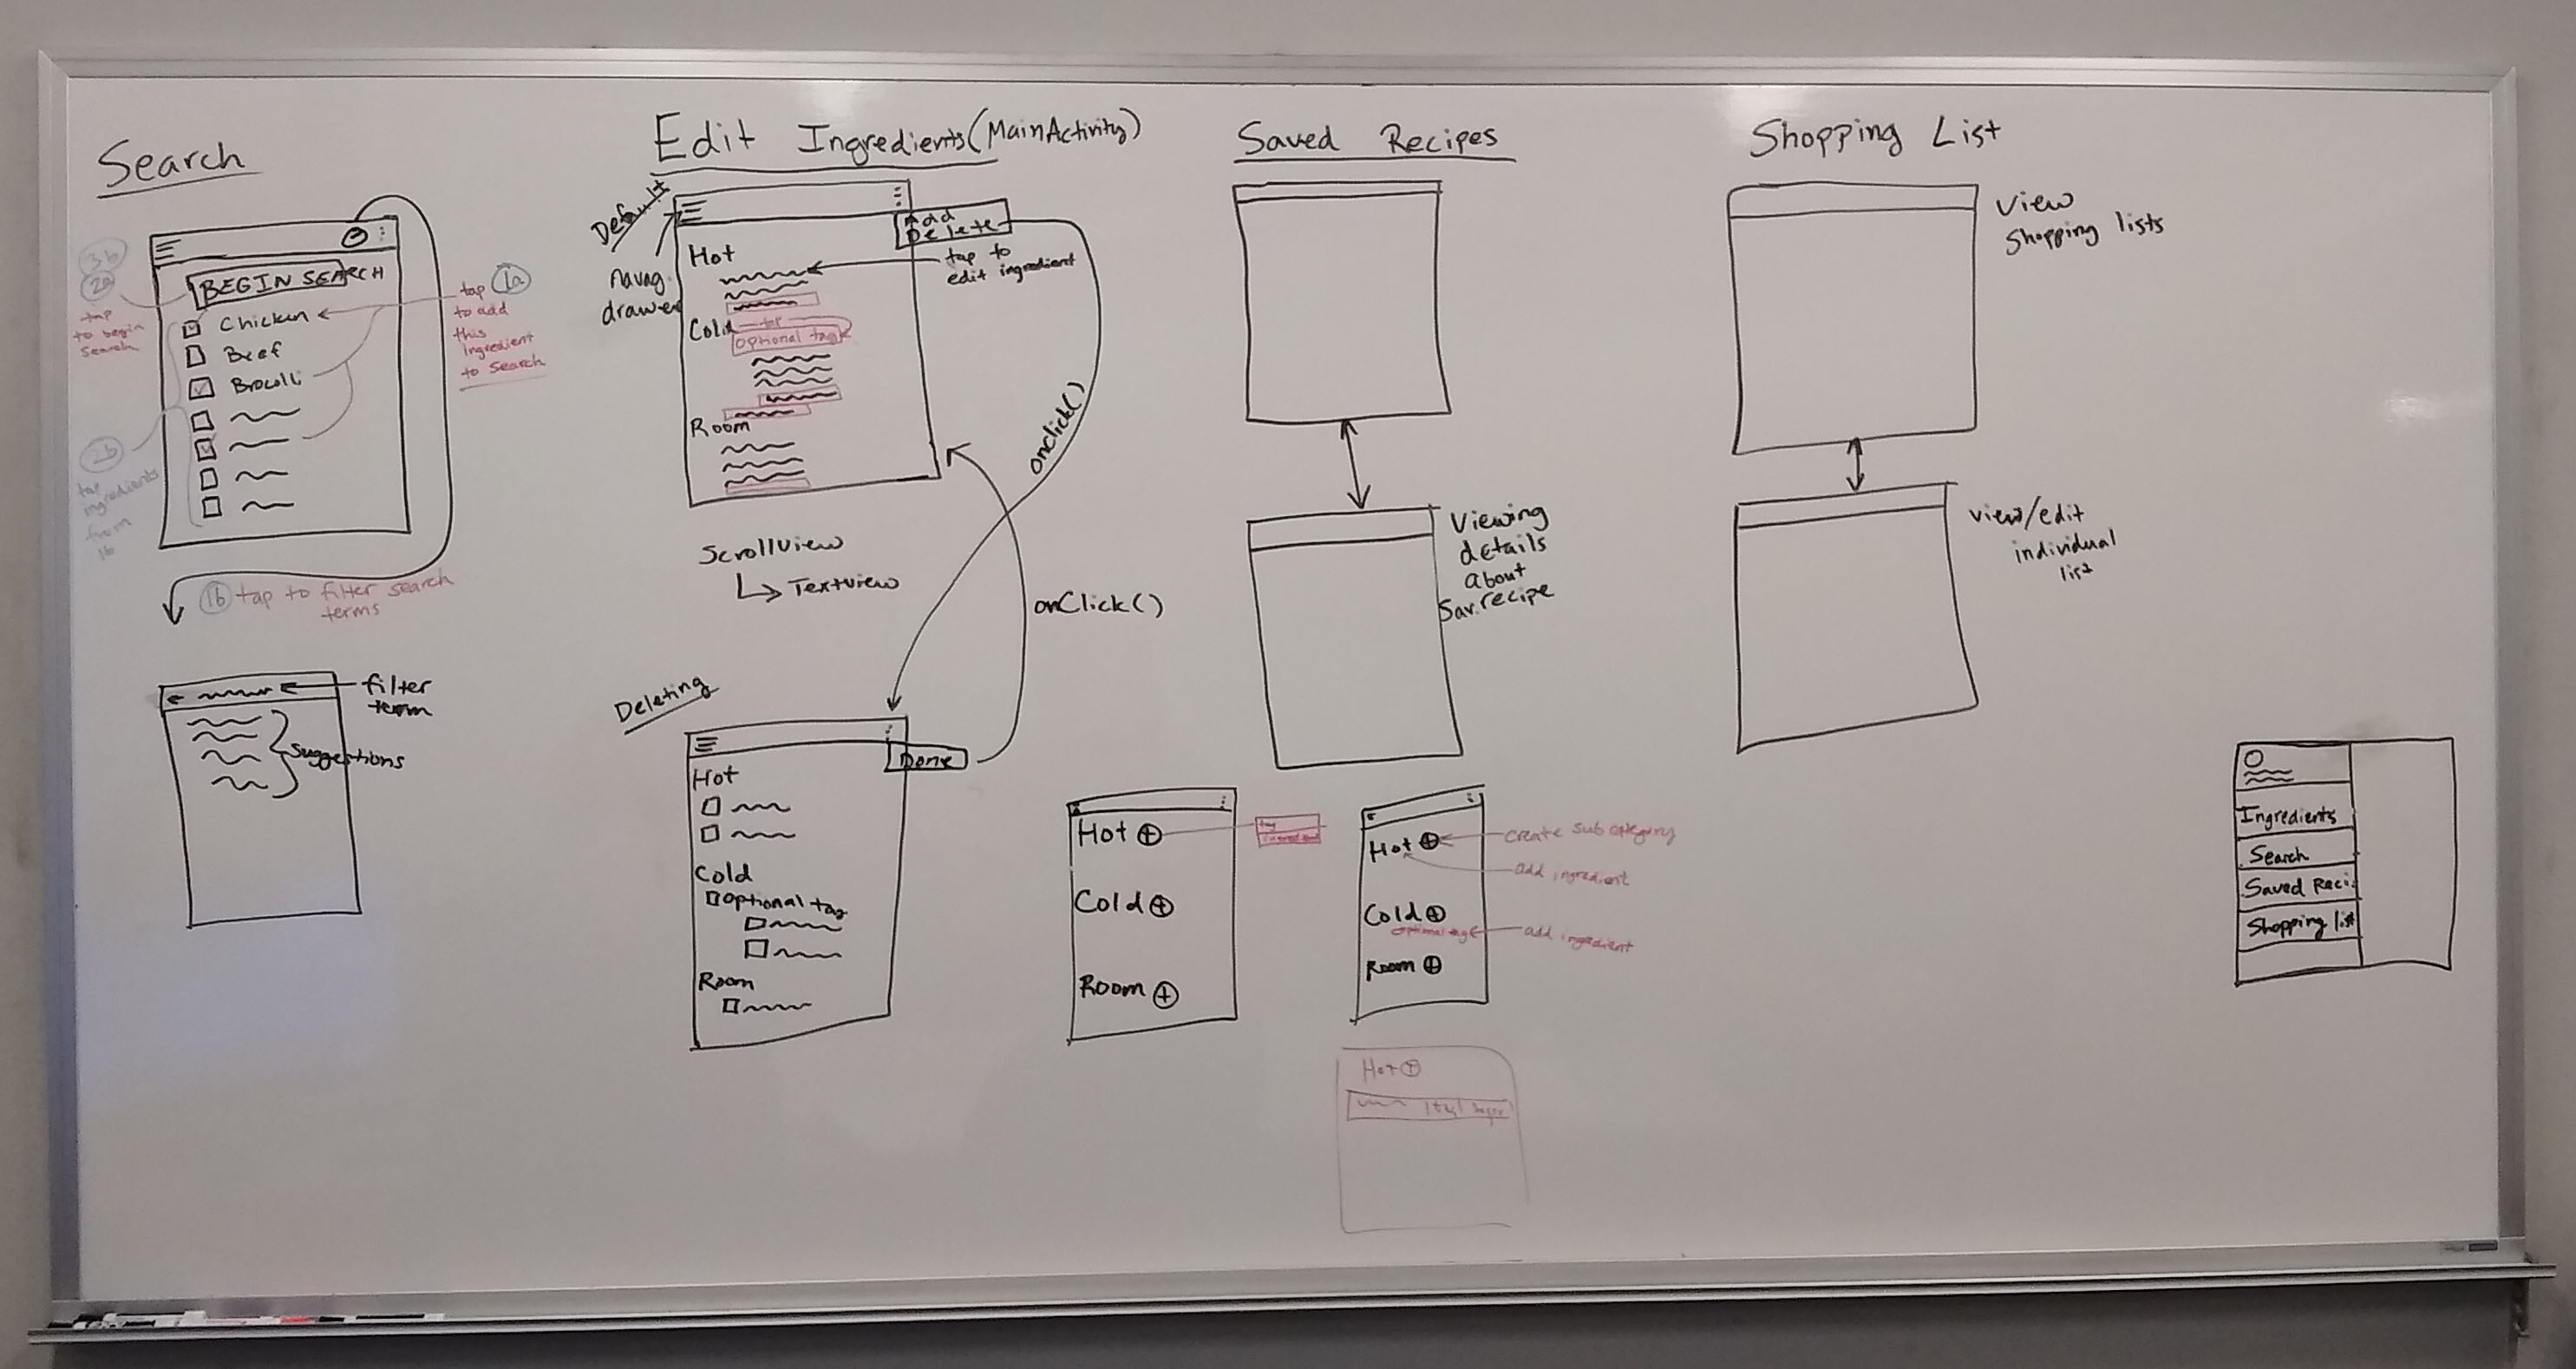 Search
3b
2a
tap
to begin
search
BEGIN SEARCH
Chicken
Beef
Brocolli
tap 1a
to add
this
ingredient
to search
2b
tap
ingredients
from
1b
1b tap to filter search
terms
filter
term
suggestions
Edit Ingredients (MainActivity)
Default
navag.
drawer
Add
Delete
Hot
tap to
edit ingredient
Cold
tap
optional tag
Room
onclick()
ScrollView
TextView
onClick()
Deleting
Done
Hot
Cold
optional tag
Room
Saved Recipes
Viewing
details
about
Sav. recipe
Hot +
Cold +
Room +
tag
ingredient
Hot +
create sub category
add ingredient
Cold +
optional tag
add ingredient
Room +
Hot +
Shopping List
View
Shopping lists
view/edit
individual
list
Ingredients
Search
Saved Reci
Shopping list